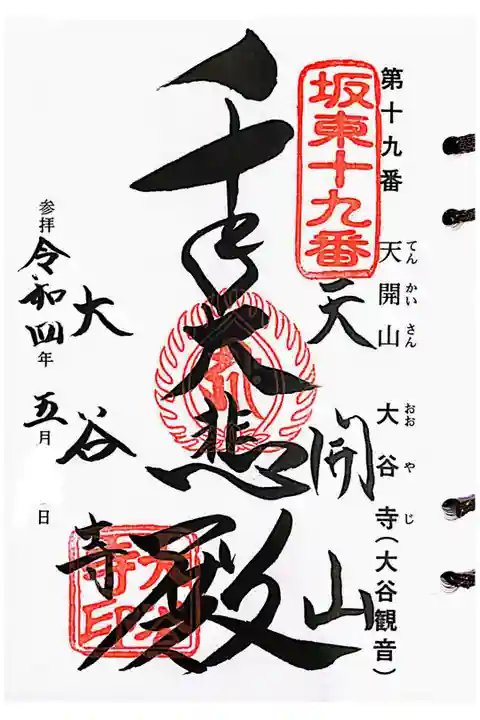 第十九番 天開山 大谷寺(大谷観音)
てんかいさん おおやじ
坂東十九番
天開山
千手大悲殿
大谷寺
大谷寺印
参拝 令和四年 五月 日